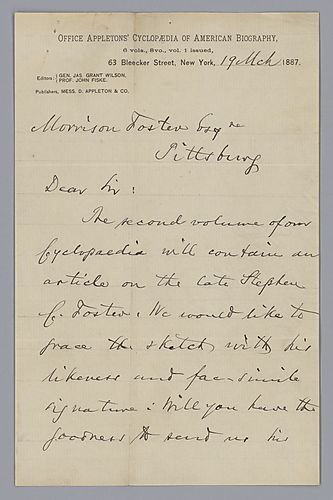 OFFICE APPLETONS' CYCLOPÆDIA OF AMERICAN BIOGRAPHY,
6 vols., 8vo., vol. 1 issued,
63 Bleecker Street, New York, 19 Mch 1887.
Editors: GEN. JAS GRANT WILSON,
PROF. JOHN FISKE.
Publishers, MESS. D. APPLETON & CO.
Morrison Foster Esqre
Pittsburg
Dear Sir:
The second volume of our
Cyclopaedia will contain an
article on the late Stephen
C. Foster: We would like to
grace the sketch with his
likeness and fac-simile
signature: Will you have the
goodness to send us his